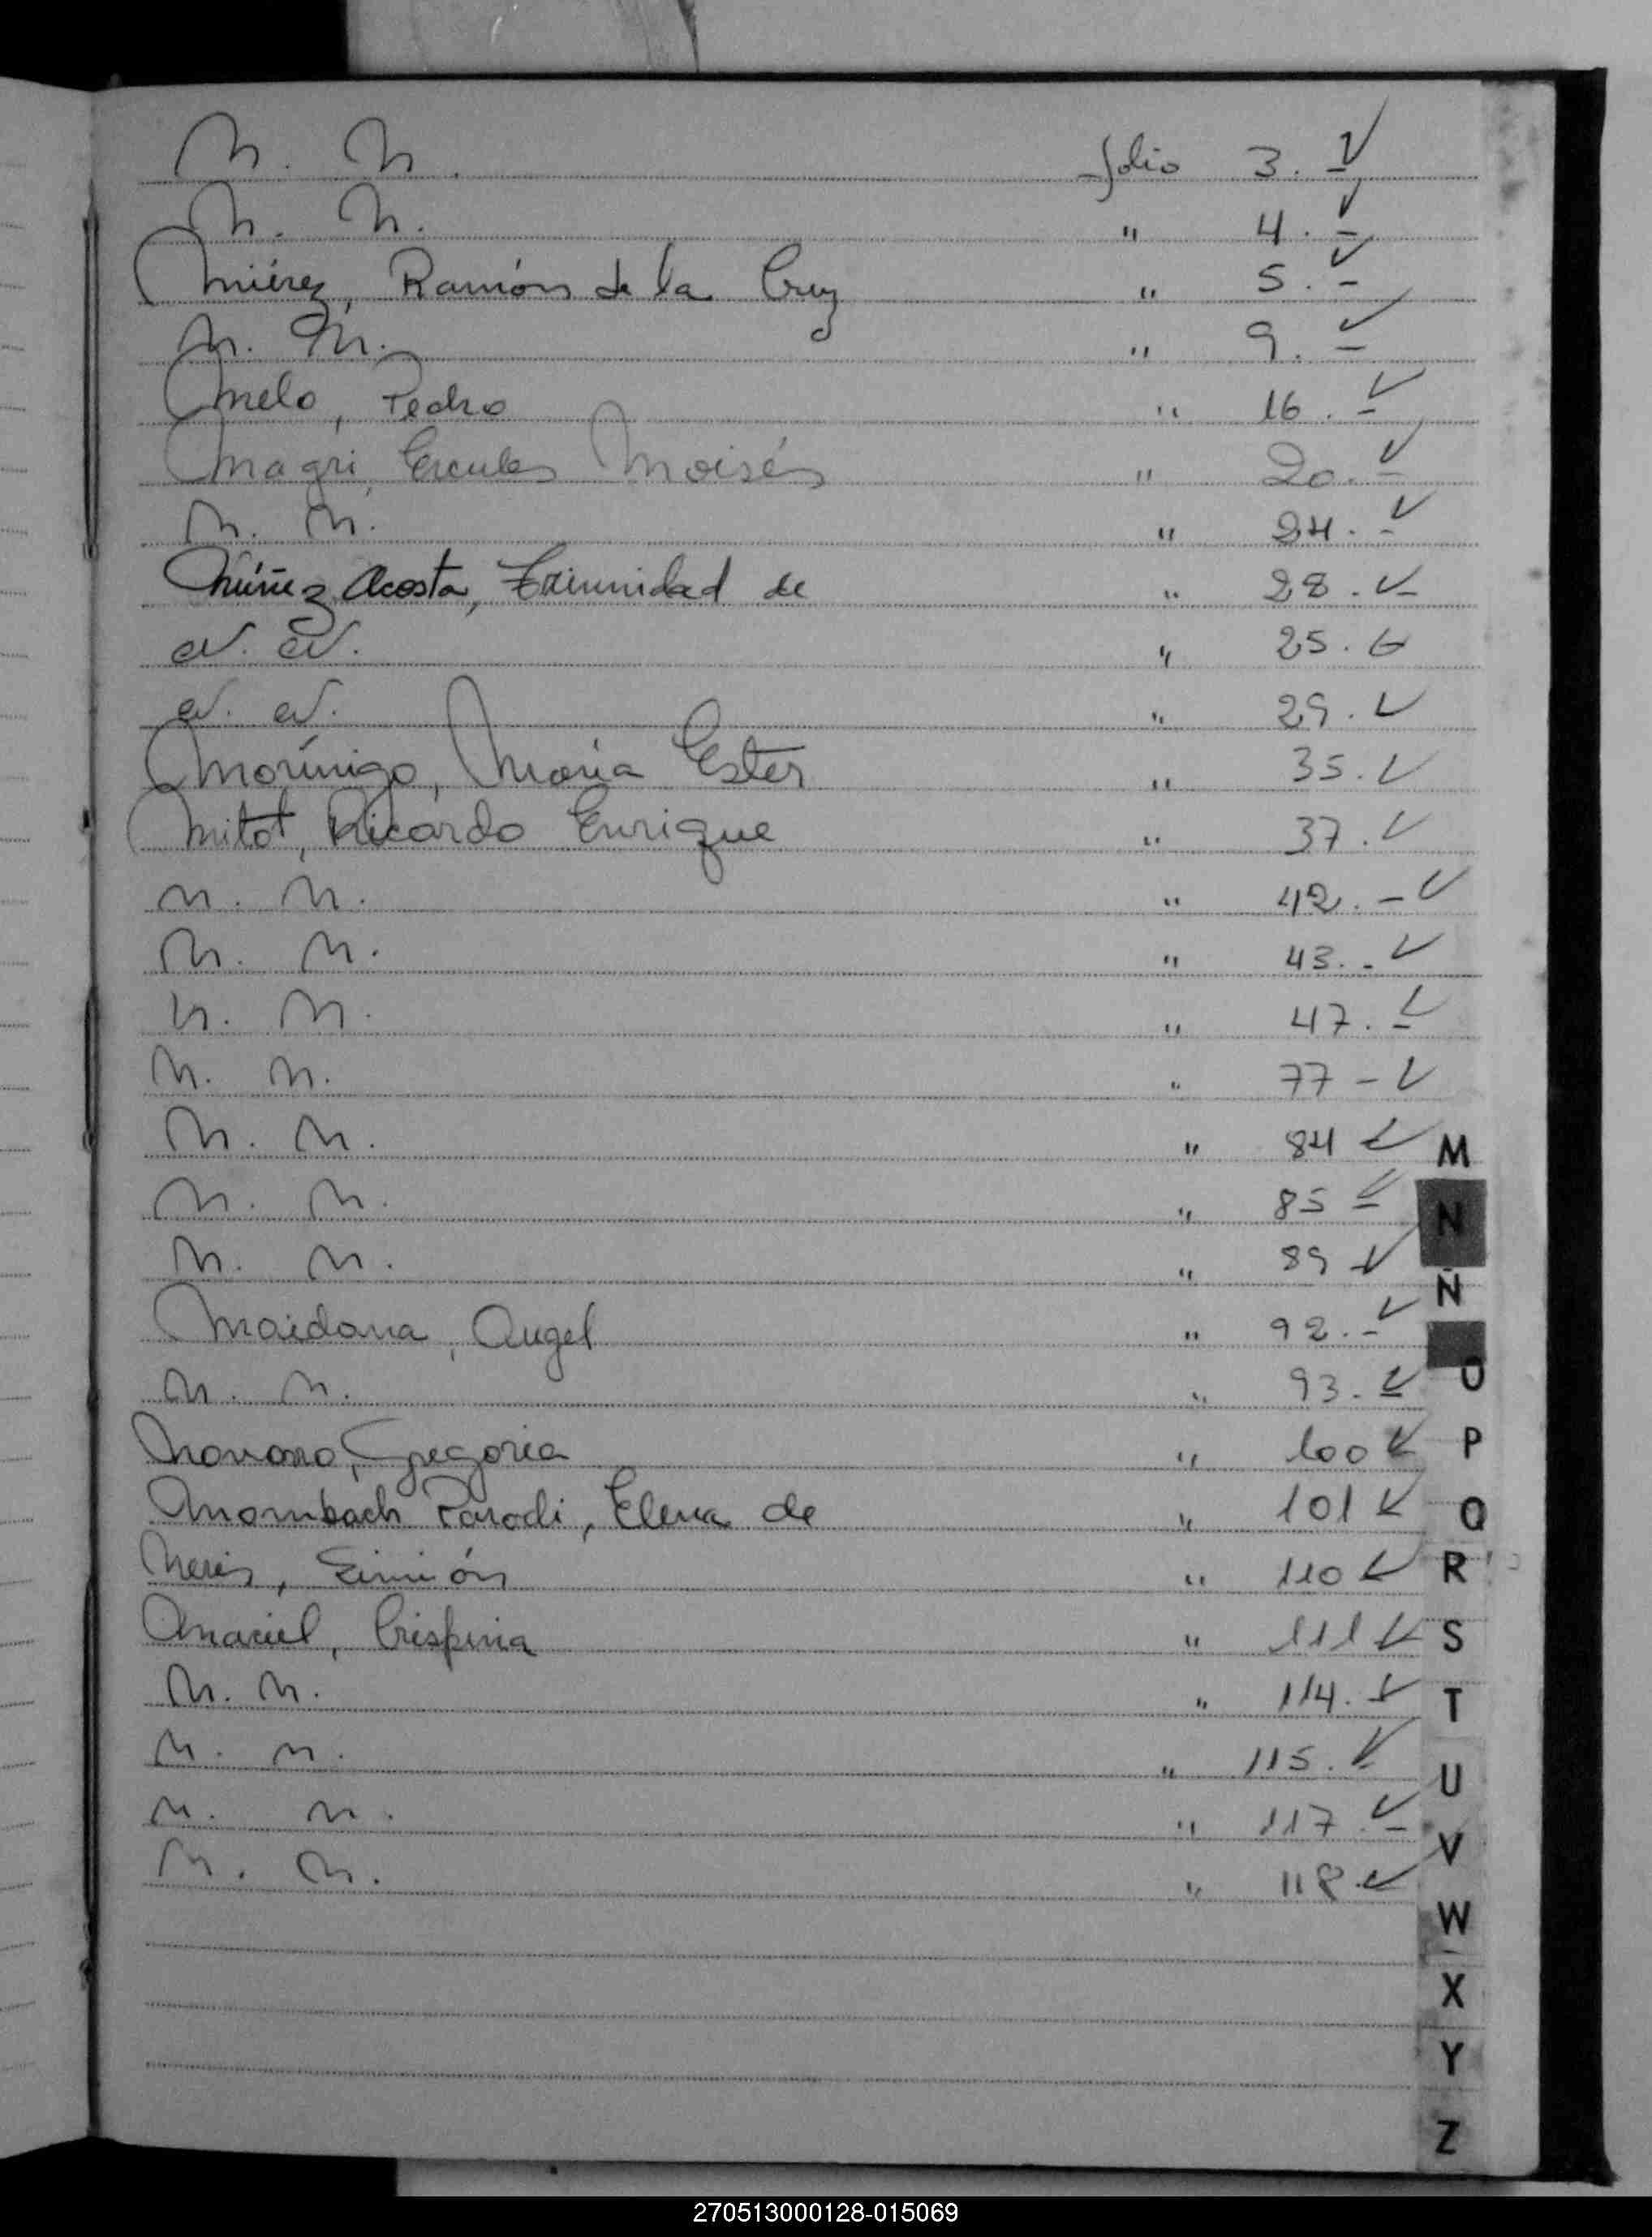 N. N. folio 3. ✓
N. N. " 4. - ✓
Miérez, Ramón de la Cruz " 5. - ✓
N. N. " 9. - ✓
Melo, Pedro " 16. - ✓
Magri, Ercules Moisés " 20. - ✓
N. N. " 24. - ✓
Núñez Acosta, Trinidad de " 28. ✓
N. N. " 25. ✓
N. N. " 29. ✓
Morínigo, María Ester " 35. ✓
Mitot, Ricardo Enrique " 37. ✓
N. N. " 42. - ✓
N. N. " 43. - ✓
N. N. " 47. - ✓
N. N. " 77 - ✓
N. N. " 84 ✓
N. N. " 85 ✓
N. N. " 89 ✓
Maidana, Angel " 92. - ✓
N. N. " 93. ✓
Navarro, Gregoria " 100 ✓
Mombach Parodi, Elena de " 101 ✓
Neris, Simón " 110 ✓
Maciel, Crispina " 111 ✓
N. N. " 114. ✓
N. N. " 115. ✓
N. N. " 117. - ✓
N. N. " 118 ✓
M
N
Ñ
O
P
Q
R
S
T
U
V
W
X
Y
Z
270513000128-015069